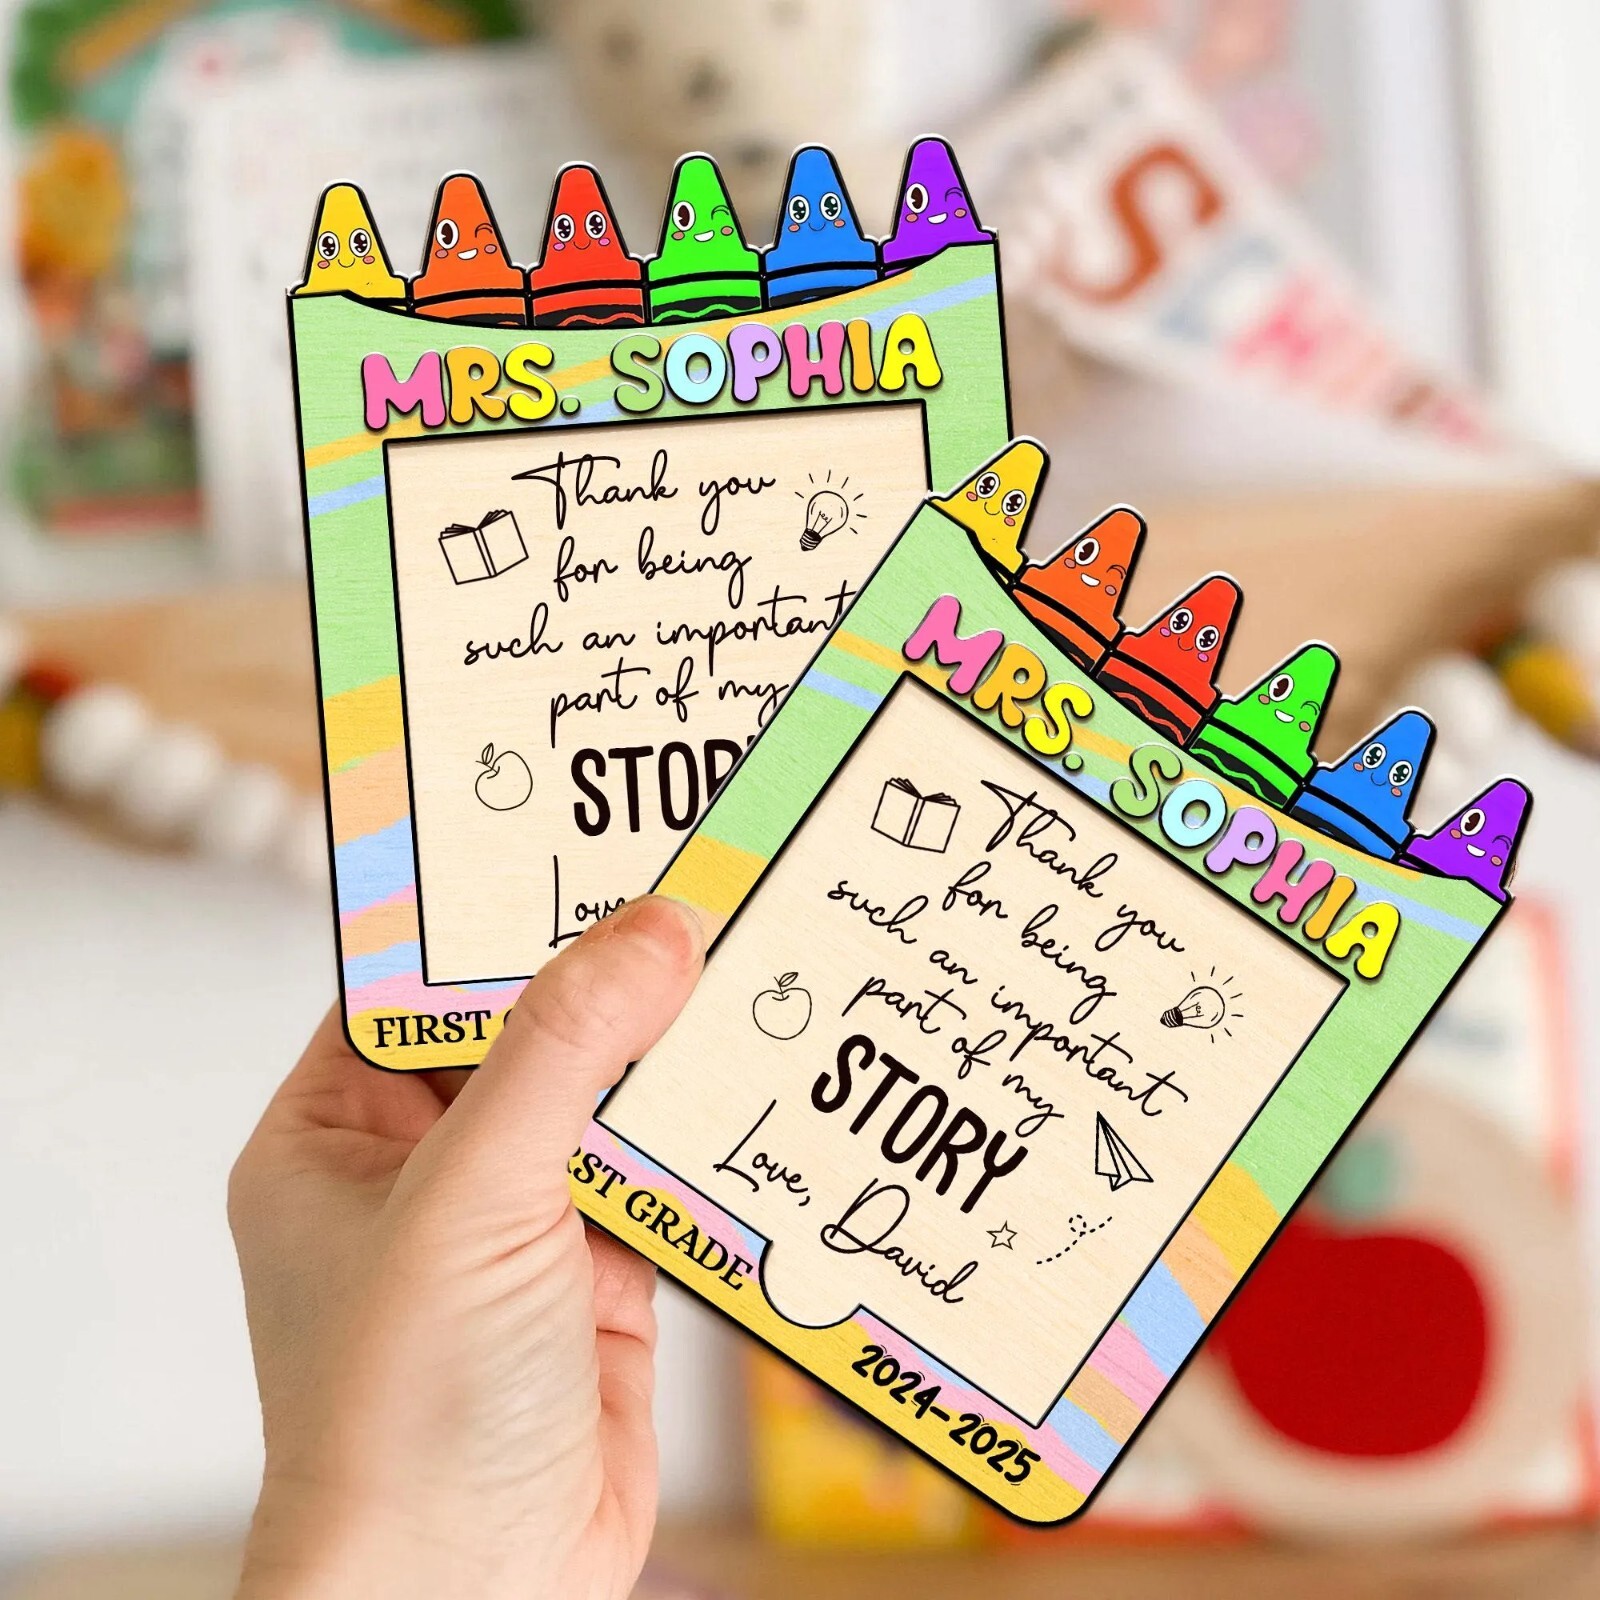 MRS. SOPHIA
Thank you
for being
such an important
part of my
STORY
Love
FIRST
MRS. SOPHIA
Thank you
for being
such an important
part of my
STORY
Love, David
FIRST GRADE
2024-2025